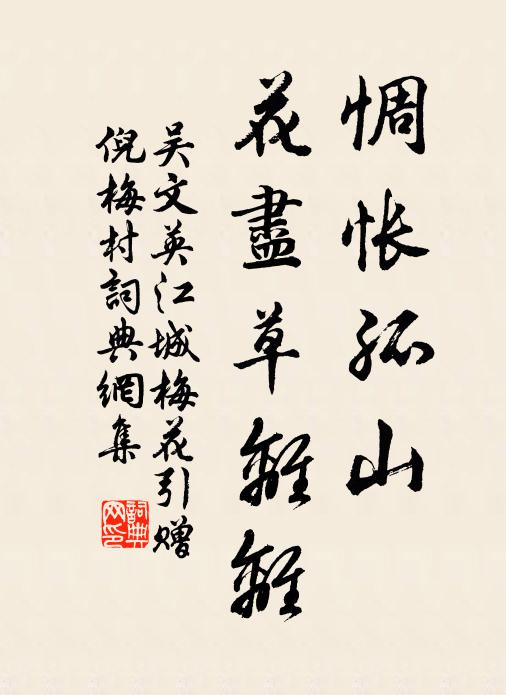 惆悵孤山
花盡草離離
吴文英江城梅花引赠
倪梅村詞典網集
詞典
网印